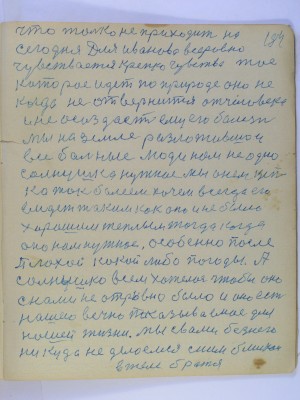 что только не приходит на 184
сегодня Для иванова всеровно
чувствается крепко чувство твое
которое идет по природе оно не
когда не отвернится от человека
и не осиздаст ему его болезн
мы на земле разложивши
все больные люди нам не одно
солнушка нужное мы о нем
ко тож болеем хочем всегда его
видет таким как оно и не было
хорошим теплым тогда когда
оно нам нужное, особенно после
плохой какой либо погоды. А
солнушко всем хотелос чтобы оно
снами не отровно было и оно есть
нашего вечно показываемое для
нашей жизни. мы свами, без него
ни куда не делаемся с ним близкае
в нем братя